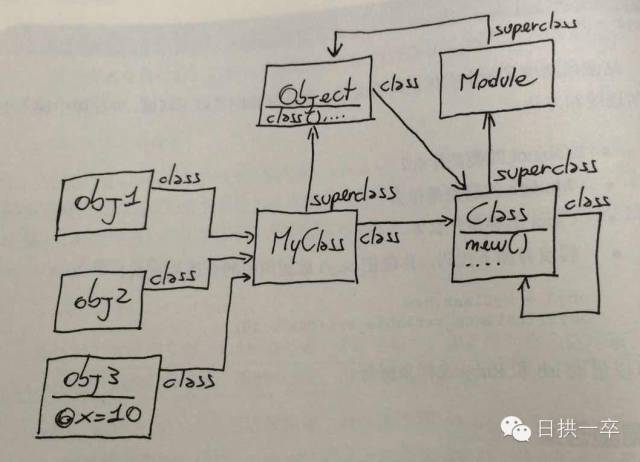 superclass
Object
class(),...
class
Module
obj1
class
superclass
superclass
MyClass
class
Class
new()
....
class
obj2
class
obj3
@x=10
class
日拱一卒